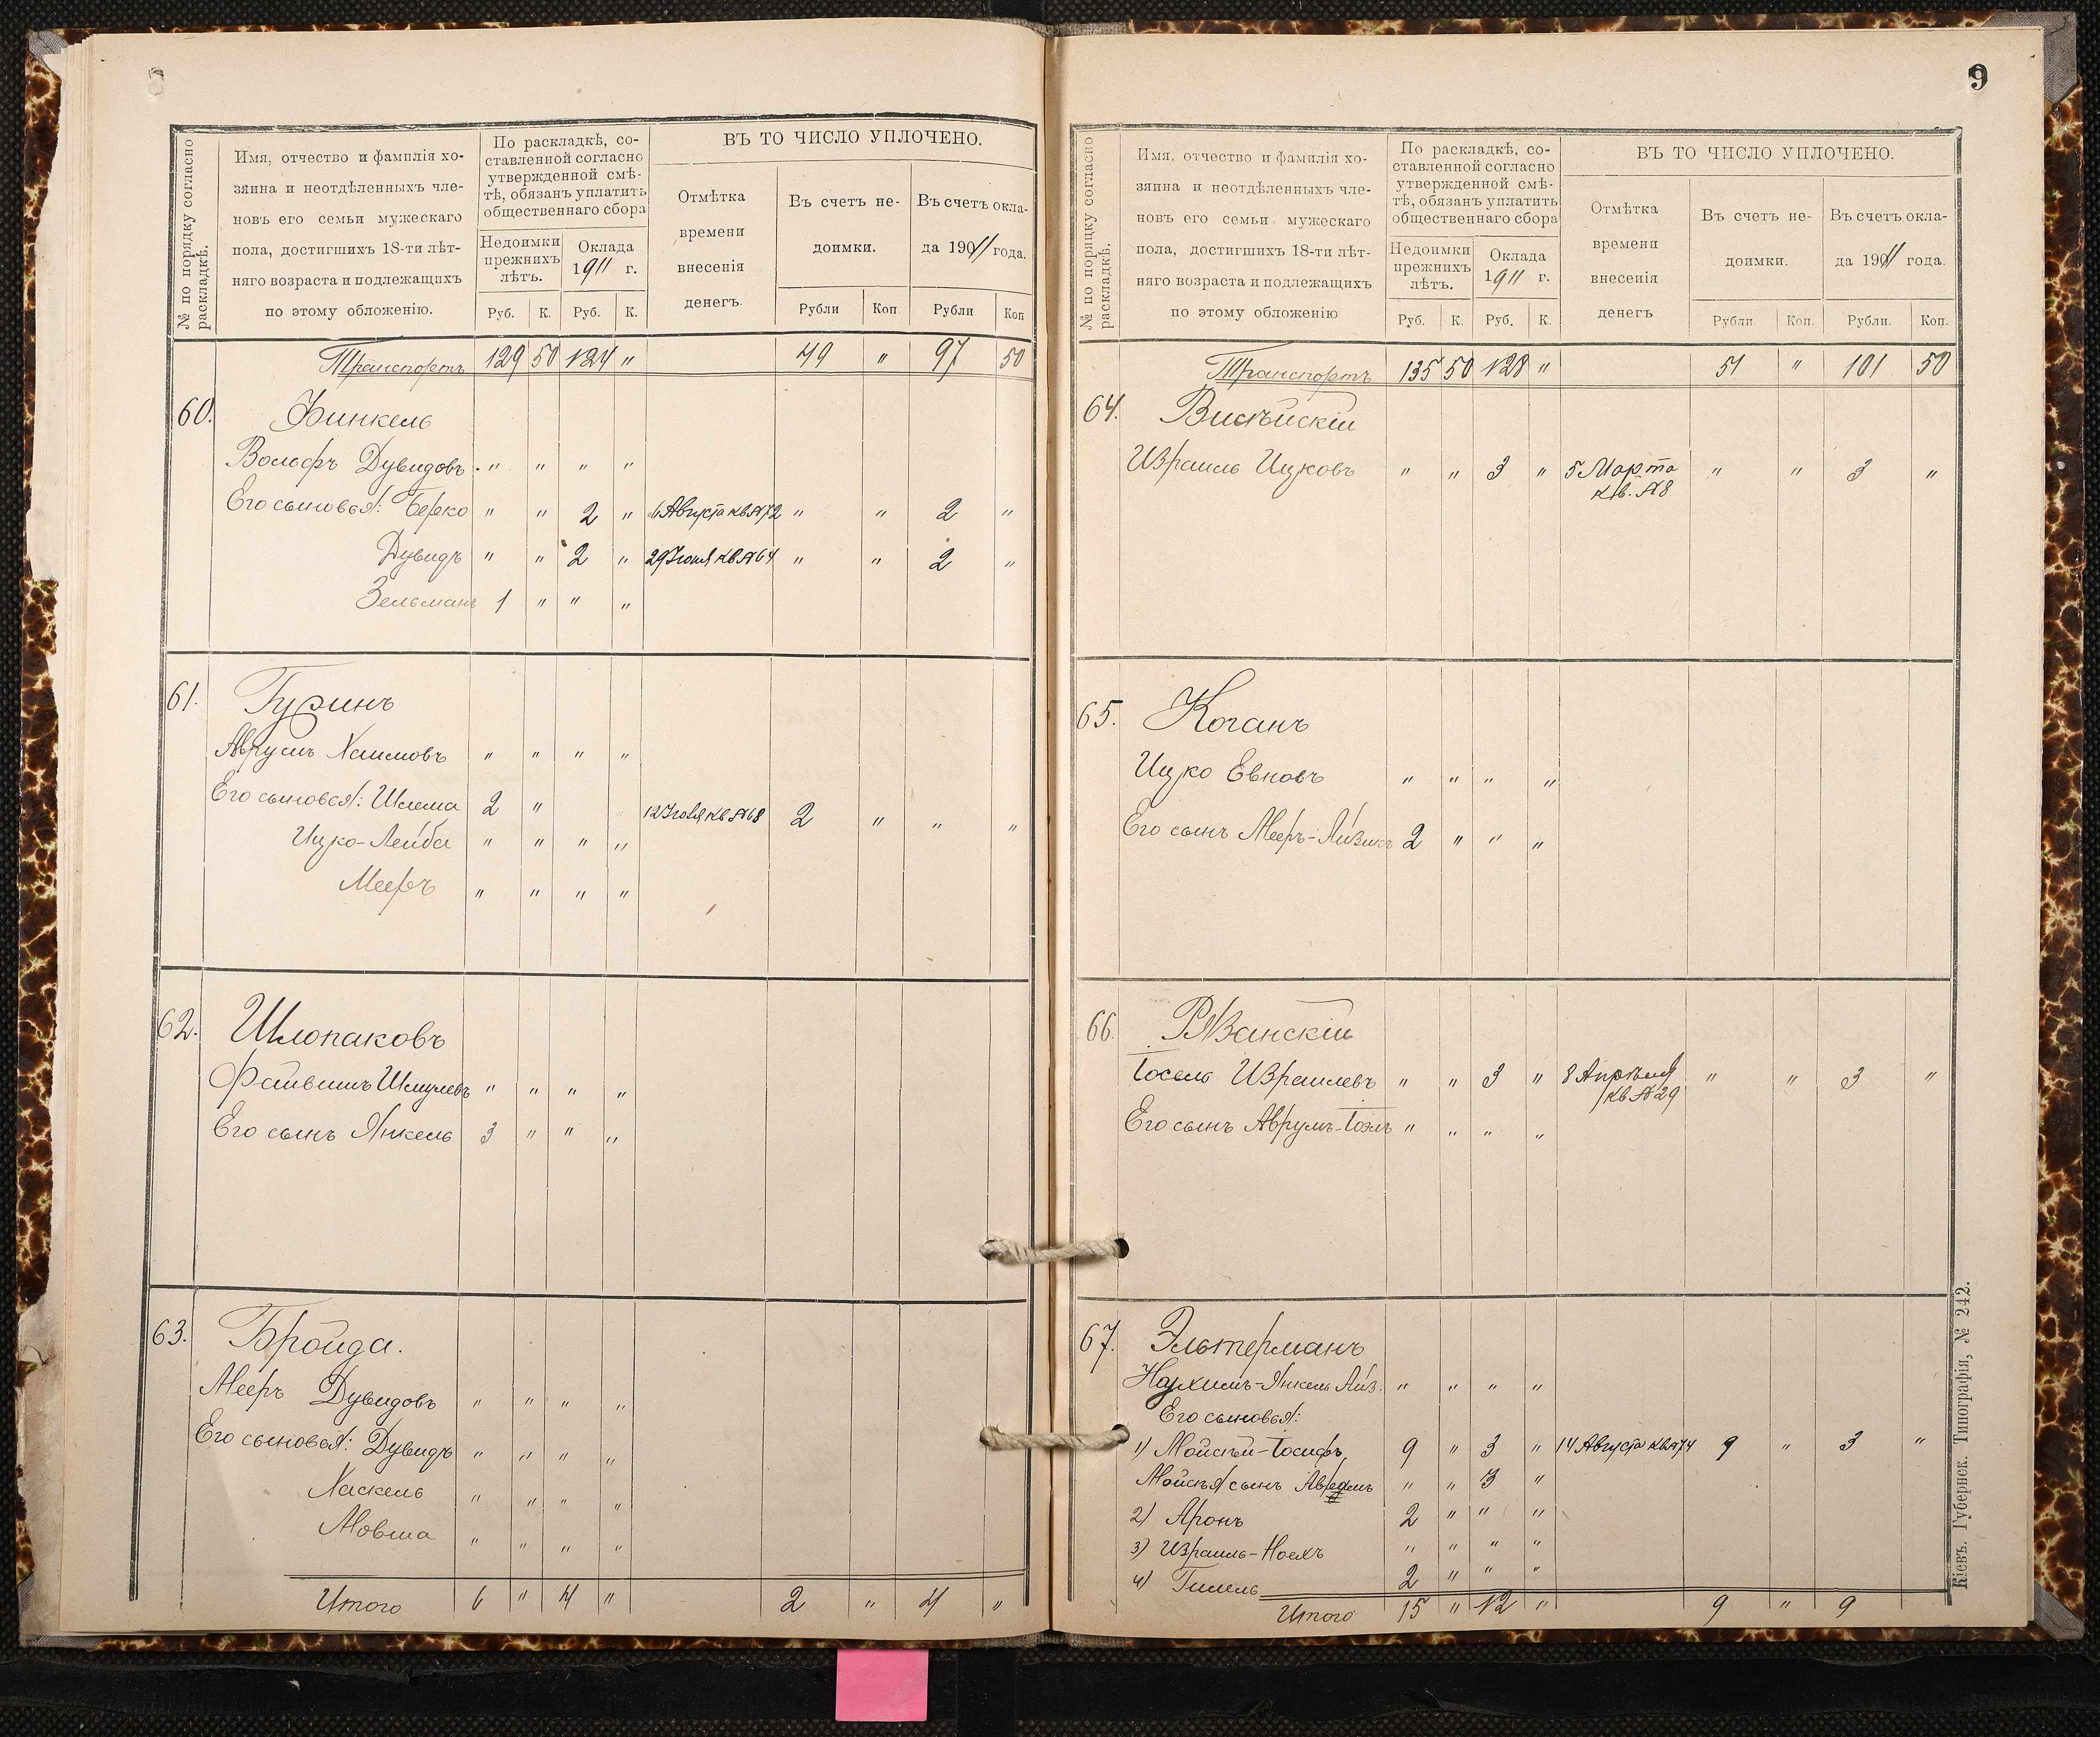 № по порядку согласно раскладкѣ.
Имя, отчество и фамилія хо-
зяина и неотдѣленныхъ чле-
новъ его семьи мужескаго
пола, достигшихъ 18-ти лѣт-
няго возраста и подлежащихъ
по этому обложенію.
По раскладкѣ, со-
ставленной согласно
утвержденной смѣ-
тѣ, обязанъ уплатить
общественнаго сбора
Недоимки прежнихъ лѣтъ.
Оклада 1911 г.
Руб. К. Руб. К.
ВЪ ТО ЧИСЛО УПЛОЧЕНО.
Отмѣтка
времени
внесенія
денегъ.
Въ счетъ не-
доимки.
Рубли Коп.
Въ счетъ окла-
да 1911 года.
Рубли Коп
Транспортъ 129 50 124 " 49 " 97 50
60. Финкель
Вольфъ Дувидовъ " " " "
Его сыновья: Берко " " 2 " 6 Августа кв №72 " " 2 "
Дувидъ " " 2 " 29 Іюля кв №64 " " 2 "
Зельманъ 1 " " "
61. Гуринъ
Аврумъ Хаимовъ " " " "
Его сыновья: Шлема 2 " " 12 Іюля кв №68 2 " " "
Ицко-Лейба " " " "
Мееръ " " " "
62. Шлопаковъ
Файвишъ Шмулевъ " " " "
Его сынъ Янкель 3 " " "
63. Бройда.
Мееръ Дувидовъ " " " "
Его сыновья: Дувидъ " " " "
Хаскель " " " "
Мовша " " " "
Итого 6 " 4 " 2 " 4 "
9
№ по порядку согласно раскладкѣ.
Имя, отчество и фамилія хо-
зяина и неотдѣленныхъ чле-
новъ его семьи мужескаго
пола, достигшихъ 18-ти лѣт-
няго возраста и подлежащихъ
по этому обложенію
По раскладкѣ, со-
ставленной согласно
утвержденной смѣ-
тѣ, обязанъ уплатить
общественнаго сбора
Недоимки прежнихъ лѣтъ.
Оклада 1911 г.
Руб. К. Руб. К.
ВЪ ТО ЧИСЛО УПЛОЧЕНО.
Отмѣтка
времени
внесенія
денегъ
Въ счетъ не-
доимки.
Рубли Коп.
Въ счетъ окла-
да 1911 года.
Рубли. Коп.
Транспортъ 135 50 128 " 51 " 101 50
64. Вилѣйскій
Израиль Ицковъ " " 3 " 5 Марта " " 3 "
кв. №8
65. Коганъ
Ицко Евновъ " " " "
Его сынъ Мееръ-Айзикъ 2 " " "
66. Рязанскій
Іосель Израилевъ " " 3 " 8 Апрѣля " " 3 "
кв №29
Его сынъ Аврумъ-Іоэль " " " "
67. Эльтерманъ
Нахимъ-Янкель Айз. " " " "
Его сыновья:
1) Мойсѣй-Іосифъ 9 " 3 " 14 Августа кв №74 9 " 3 "
Мойсѣя сынъ Аврамъ " " 3 "
2) Аронъ 2 " " "
3) Израиль-Ноехъ " " " "
4) Гилель 2 " " "
Итого 15 " 12 " 9 " 9
Кіевъ. Губернск. Типографія, № 242.